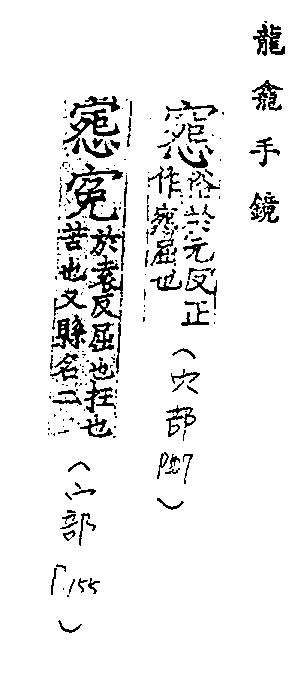 龍龕手鏡
俗於元反正
作惌屈也
(穴部
惌寃
於袁反屈也枉也
苦也又縣名二
(宀部
P.155)